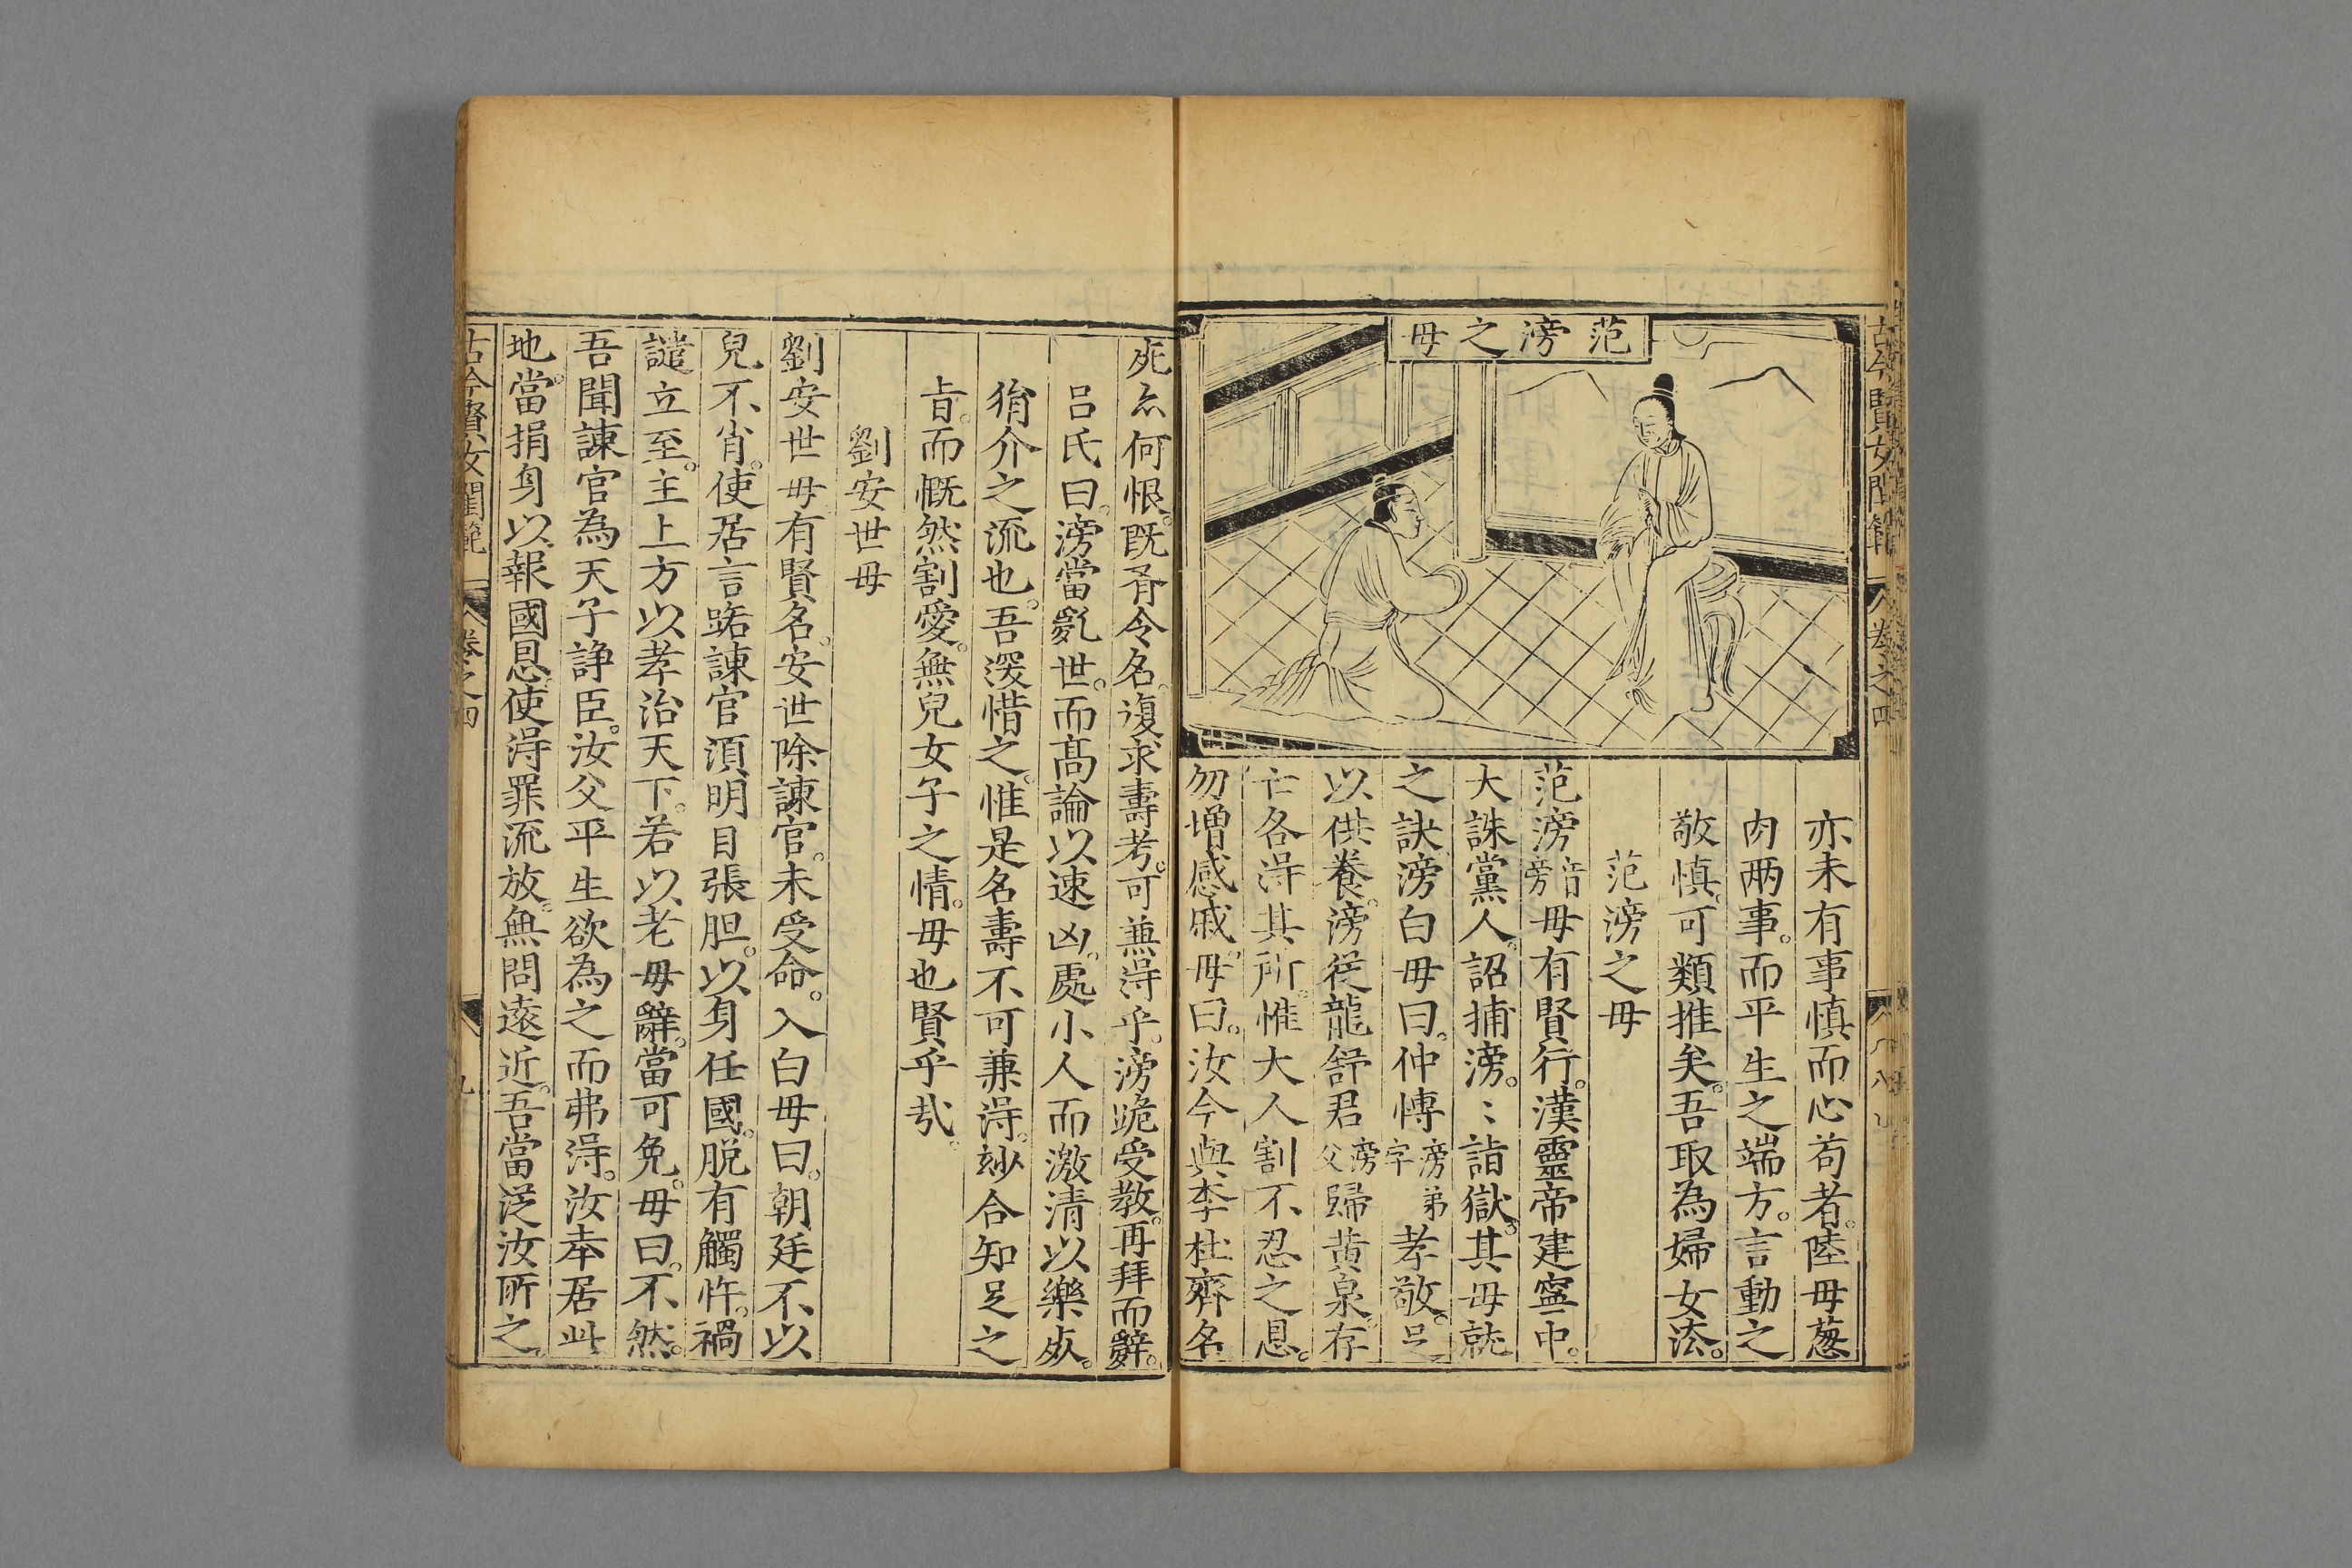 范滂之母
亦未有事慎而心苟者陸母葱
肉兩事而平生之端方言動之
敬慎可類推矣吾取為婦女法
范滂之母
范滂音旁母有賢行漢靈帝建寧中
大誅黨人詔捕滂〻詣獄其母就
之訣滂白母曰仲愽滂弟字孝敬𠯁
以供養滂從龍舒君滂父歸黃泉存
亡各淂其所惟大人割不忍之恩
勿增感戚母曰汝今與李杜齊名
死亦何恨既有令名復求壽考可兼淂乎滂跪受教再拜而辭
吕氏曰滂當亂世而髙論以速凶處小人而激清以樂死
狷介之流也吾深惜之惟是名壽不可兼淂竗合知足之
旨而慨然割愛無兒女子之情母也賢乎哉
劉安世母
劉安世母有賢名安世除諫官未受命入白母曰朝廷不以
兒不肖使居言路諫官須明目張胆以身任國脱有觸忤禍
譴立至主上方以孝治天下若以老母辭當可免母曰不然
吾聞諫官為天子諍臣汝父平生欲為之而弗淂汝幸居此
地當捐身以報國恩使淂罪流放無問遠近吾當從汝所之
古今賢女閨範
卷之四
九